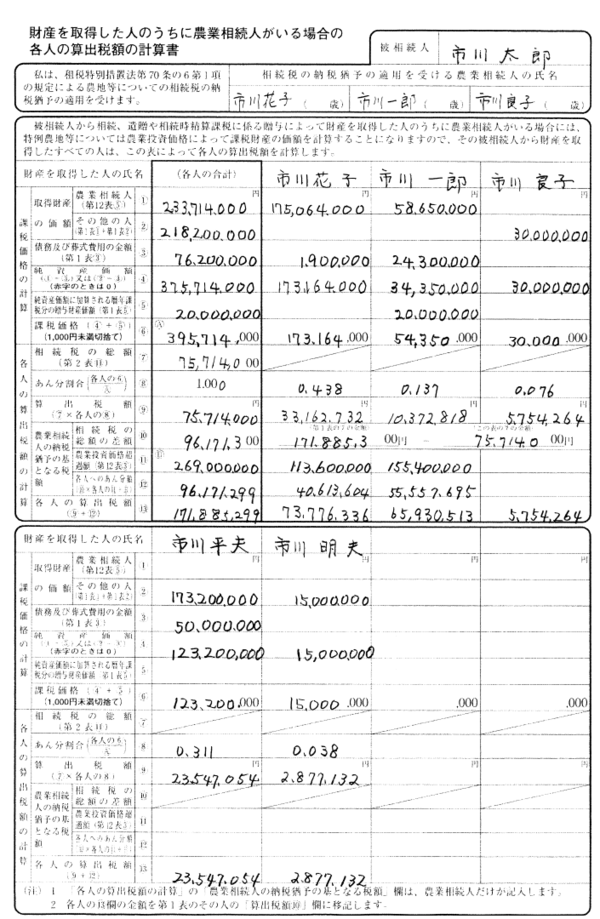 財産を取得した人のうちに農業相続人がいる場合の
各人の算出税額の計算書
被相続人 市川太郎
私は、租税特別措置法第70条の6第1項
の規定による農地等についての相続税の納
税猶予の適用を受けます。
相続税の納税猶予の適用を受ける農業相続人の氏名
市川花子 ( 歳) 市川一郎 ( 歳) 市川良子 ( 歳)
被相続人から相続、遺贈や相続時精算課税に係る贈与によって財産を取得した人のうちに農業相続人がいる場合には、
特例農地等については農業投資価格によって課税財産の価額を計算することになりますので、その被相続人から財産を取
得したすべての人は、この表によって各人の算出税額を計算します。
財産を取得した人の氏名 (各人の合計) 市川花子 市川一郎 市川良子
課税価格の計算
取得財産の価額 農業相続人 (第12表⑤) ① 233,714,000円 175,064,000円 58,650,000円 円
その他の人 ② 218,200,000 30,000,000
債務及び葬式費用の金額 (第1表③) ③ 76,200,000 1,900,000 24,300,000
純資産価額 (赤字のときは0) ④ 375,714,000 173,164,000 34,350,000 30,000,000
純資産価額に加算される暦年課税分の贈与財産価額(第1表⑤) ⑤ 20,000,000 20,000,000
課税価格(④+⑤) (1,000円未満切捨て) ⑥ Ⓐ 395,714,000 173,164,000 54,350,000 30,000,000
各人の算出税額の計算
相続税の総額 (第2表⑪) ⑦ 75,714,000
あん分割合(各人の⑥/Ⓐ) ⑧ 1.000 0.438 0.137 0.076
算出税額 (⑦×各人の⑧) ⑨ 75,714,000 33,162,732 10,372,818 5,754,264
農業相続人の納税猶予の基となる税額
相続税の総額の差額 ⑩ 96,171,300 (第1表の⑦の金額) 171,885,300円 − (この表の⑦の金額) 75,714,000円
農業投資価格超過額(第12表③) ⑪ 269,000,000 113,600,000 155,400,000
各人へのあん分額 ⑫ 96,171,299 40,613,604 55,557,695
各人の算出税額 (⑨+⑫) ⑬ 171,885,299 73,776,336 65,930,513 5,754,264
財産を取得した人の氏名 市川平夫 市川明夫
課税価格の計算
取得財産の価額 農業相続人 (第12表⑤) ① 円 円 円 円
その他の人 ② 173,200,000 15,000,000
債務及び葬式費用の金額 (第1表③) ③ 50,000,000
純資産価額 (赤字のときは0) ④ 123,200,000 15,000,000
純資産価額に加算される暦年課税分の贈与財産価額(第1表⑤) ⑤
課税価格(④+⑤) (1,000円未満切捨て) ⑥ 123,200,000 15,000,000 ,000 ,000
各人の算出税額の計算
相続税の総額 (第2表⑪) ⑦
あん分割合(各人の⑥/Ⓐ) ⑧ 0.311 0.038
算出税額 (⑦×各人の⑧) ⑨ 23,547,054 2,877,132
農業相続人の納税猶予の基となる税額
相続税の総額の差額 ⑩
農業投資価格超過額(第12表③) ⑪
各人へのあん分額 ⑫
各人の算出税額 (⑨+⑫) ⑬ 23,547,054 2,877,132
(注) 1 「各人の算出税額の計算」の「農業相続人の納税猶予の基となる税額」欄は、農業相続人だけが記入します。
2 各人の⑬欄の金額を第1表のその人の「算出税額⑩」欄に移記します。